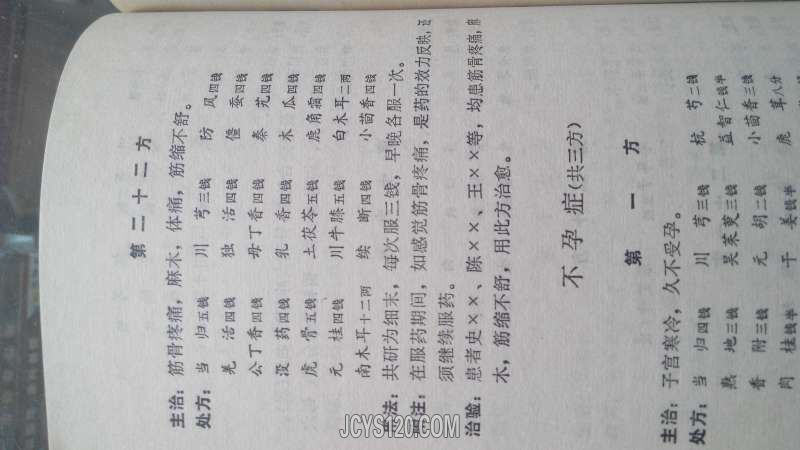 第二十二方
主治：筋骨疼痛，麻木，体痛，筋缩不舒。
处方：当归五钱 川芎三钱 防风四钱
羌活四钱 独活四钱 僵蚕四钱
公丁香四钱 母丁香四钱 秦艽四钱
没药四钱 乳香四钱 木瓜四钱
虎骨五钱 土茯苓五钱 虎角霜四钱
元桂四钱 川牛膝五钱 白木耳二两
南木耳十二两 续断四钱 小茴香四钱
法：共研为细末，每次服三钱，早晚各服一次。
注：在服药期间，如感觉筋骨疼痛，是药的效力反映，
须继续服药。
治验：患者史××、陈××、王××等，均患筋骨疼痛，麻
木，筋缩不舒，用此方治愈。
不孕症(共三方)
第一方
主治：子宫寒冷，久不受孕。
处方：当归四钱 川芎三钱 杭芍二钱
熟地三钱 吴茱萸三钱 益智仁钱半
香附三钱 元胡二钱 小茴香三钱
肉桂钱半 干姜钱半 虎
JCYS120.COM